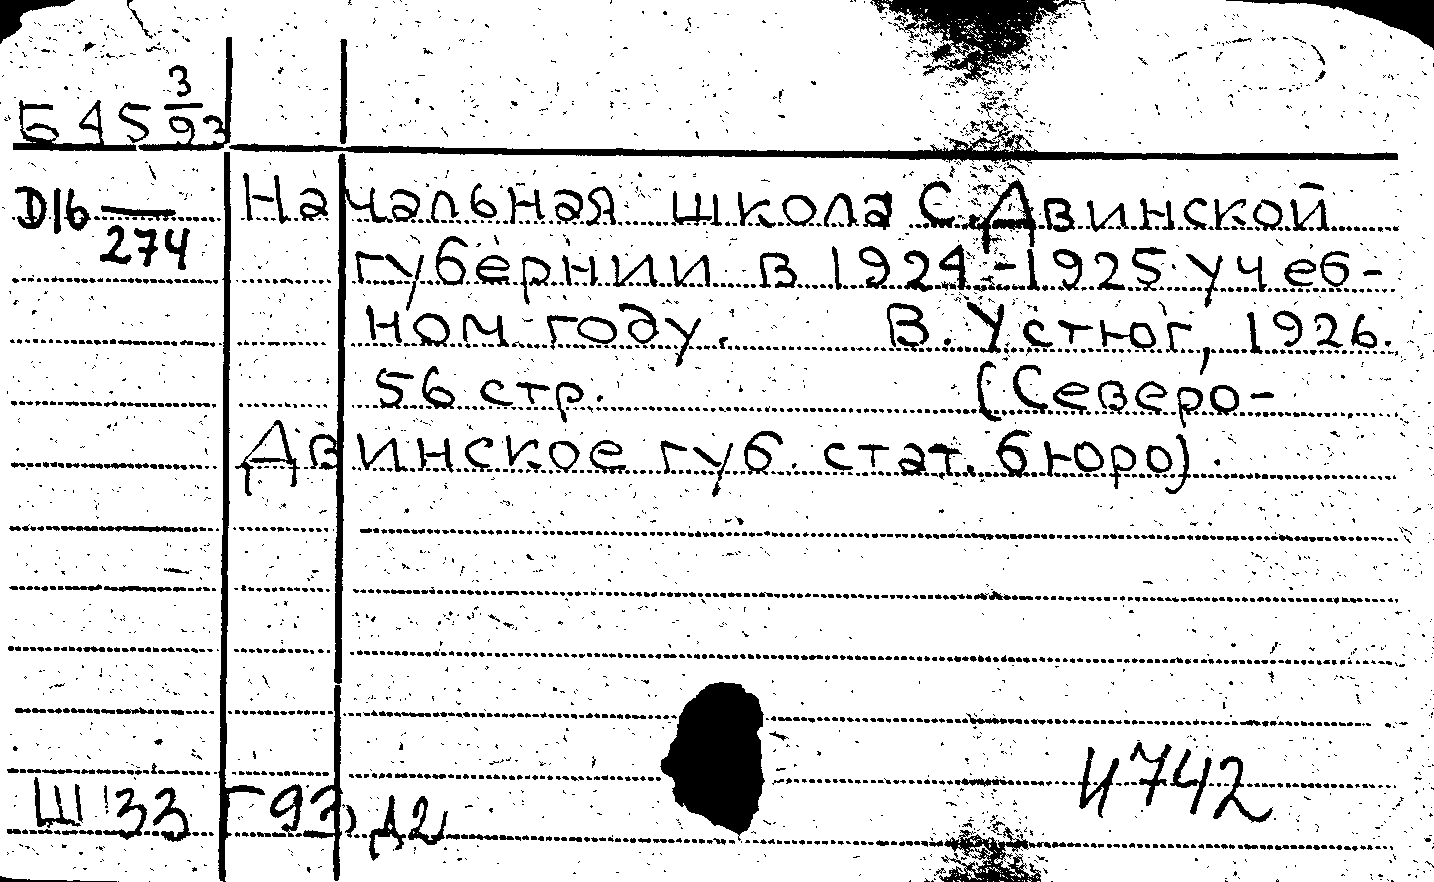 Б 45 3/93
D16 —/274
Начальная школа С.Двинской
губернии в 1924-1925 учеб-
ном году. В. Устюг, 1926.
56 стр. (Северо-
Двинское губ. стат. бюро).
И742
Ш133 Г93, Д2